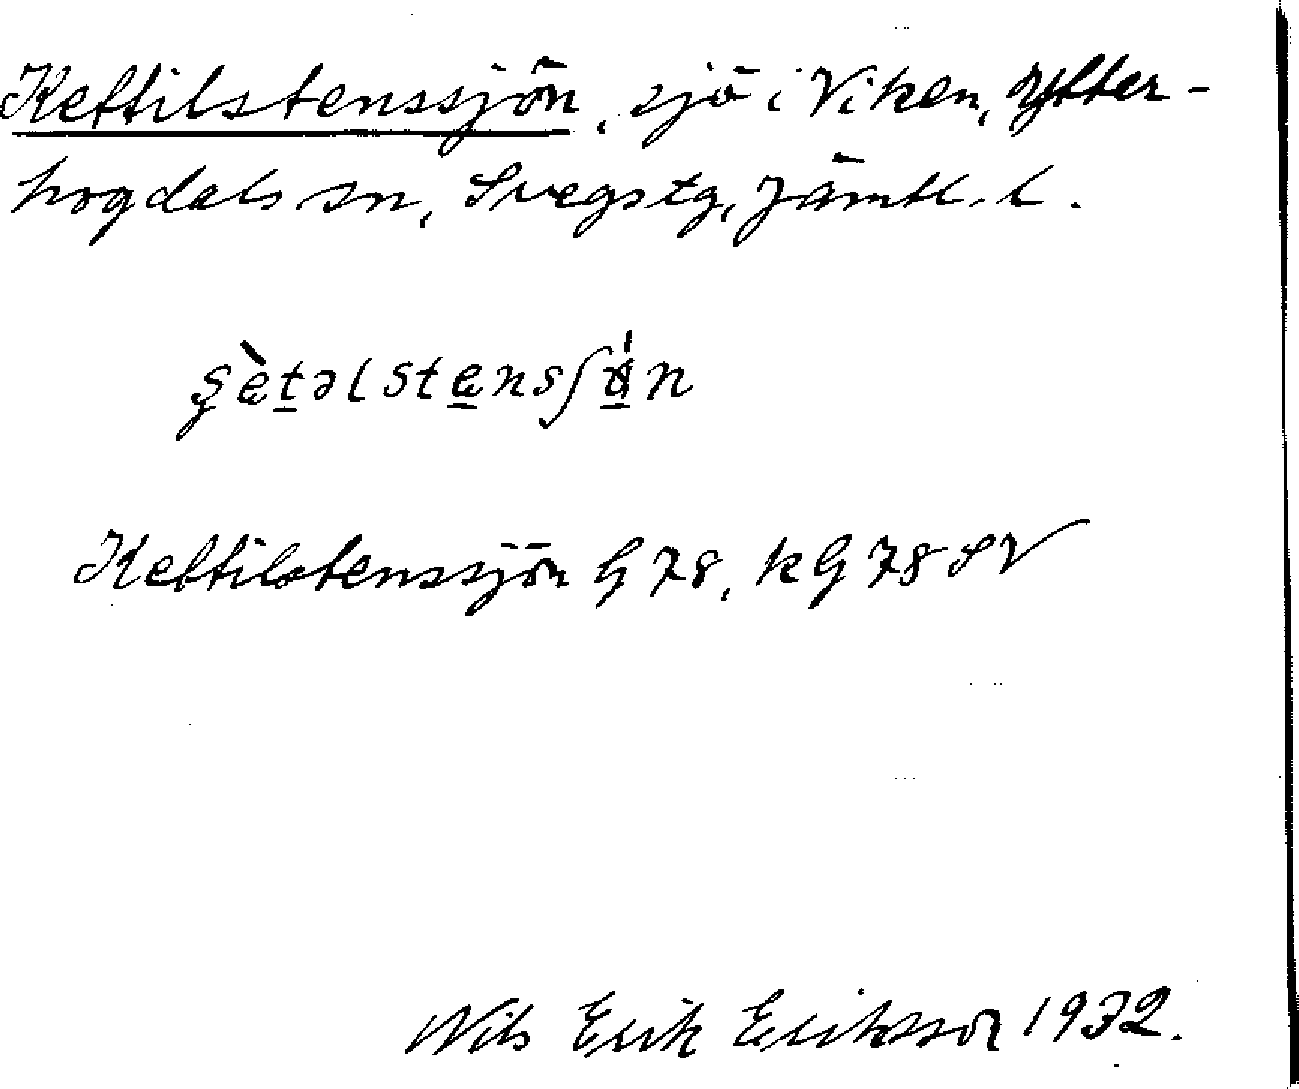 Kettilstenssjön, sjö i Viken, Ytter-
hogdals sn, Svegs tg, Jämtl. l.
Kettilstenssjön G 78, kG 78 SV
Nils Erik Eriksson 1932.